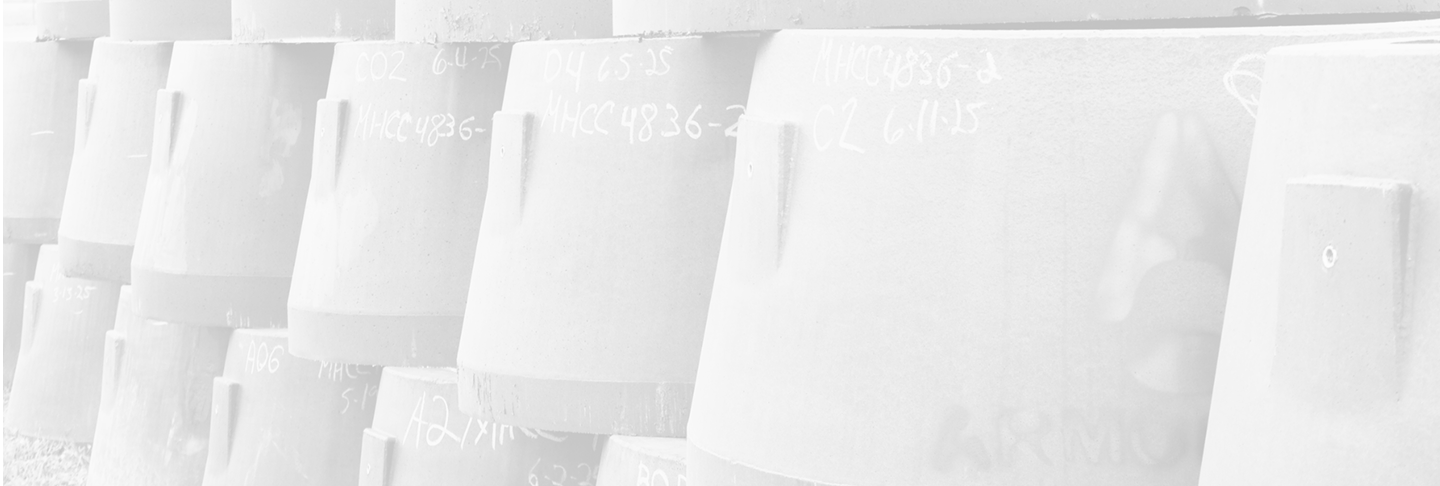 CO2 6-11-25
MHCC4836-
D4 6.5-25
MHCC4836-2
MHCC4836-2
C2 6.11.25
3-13-25
A06
MHCC
5-1
A2
6-2-25